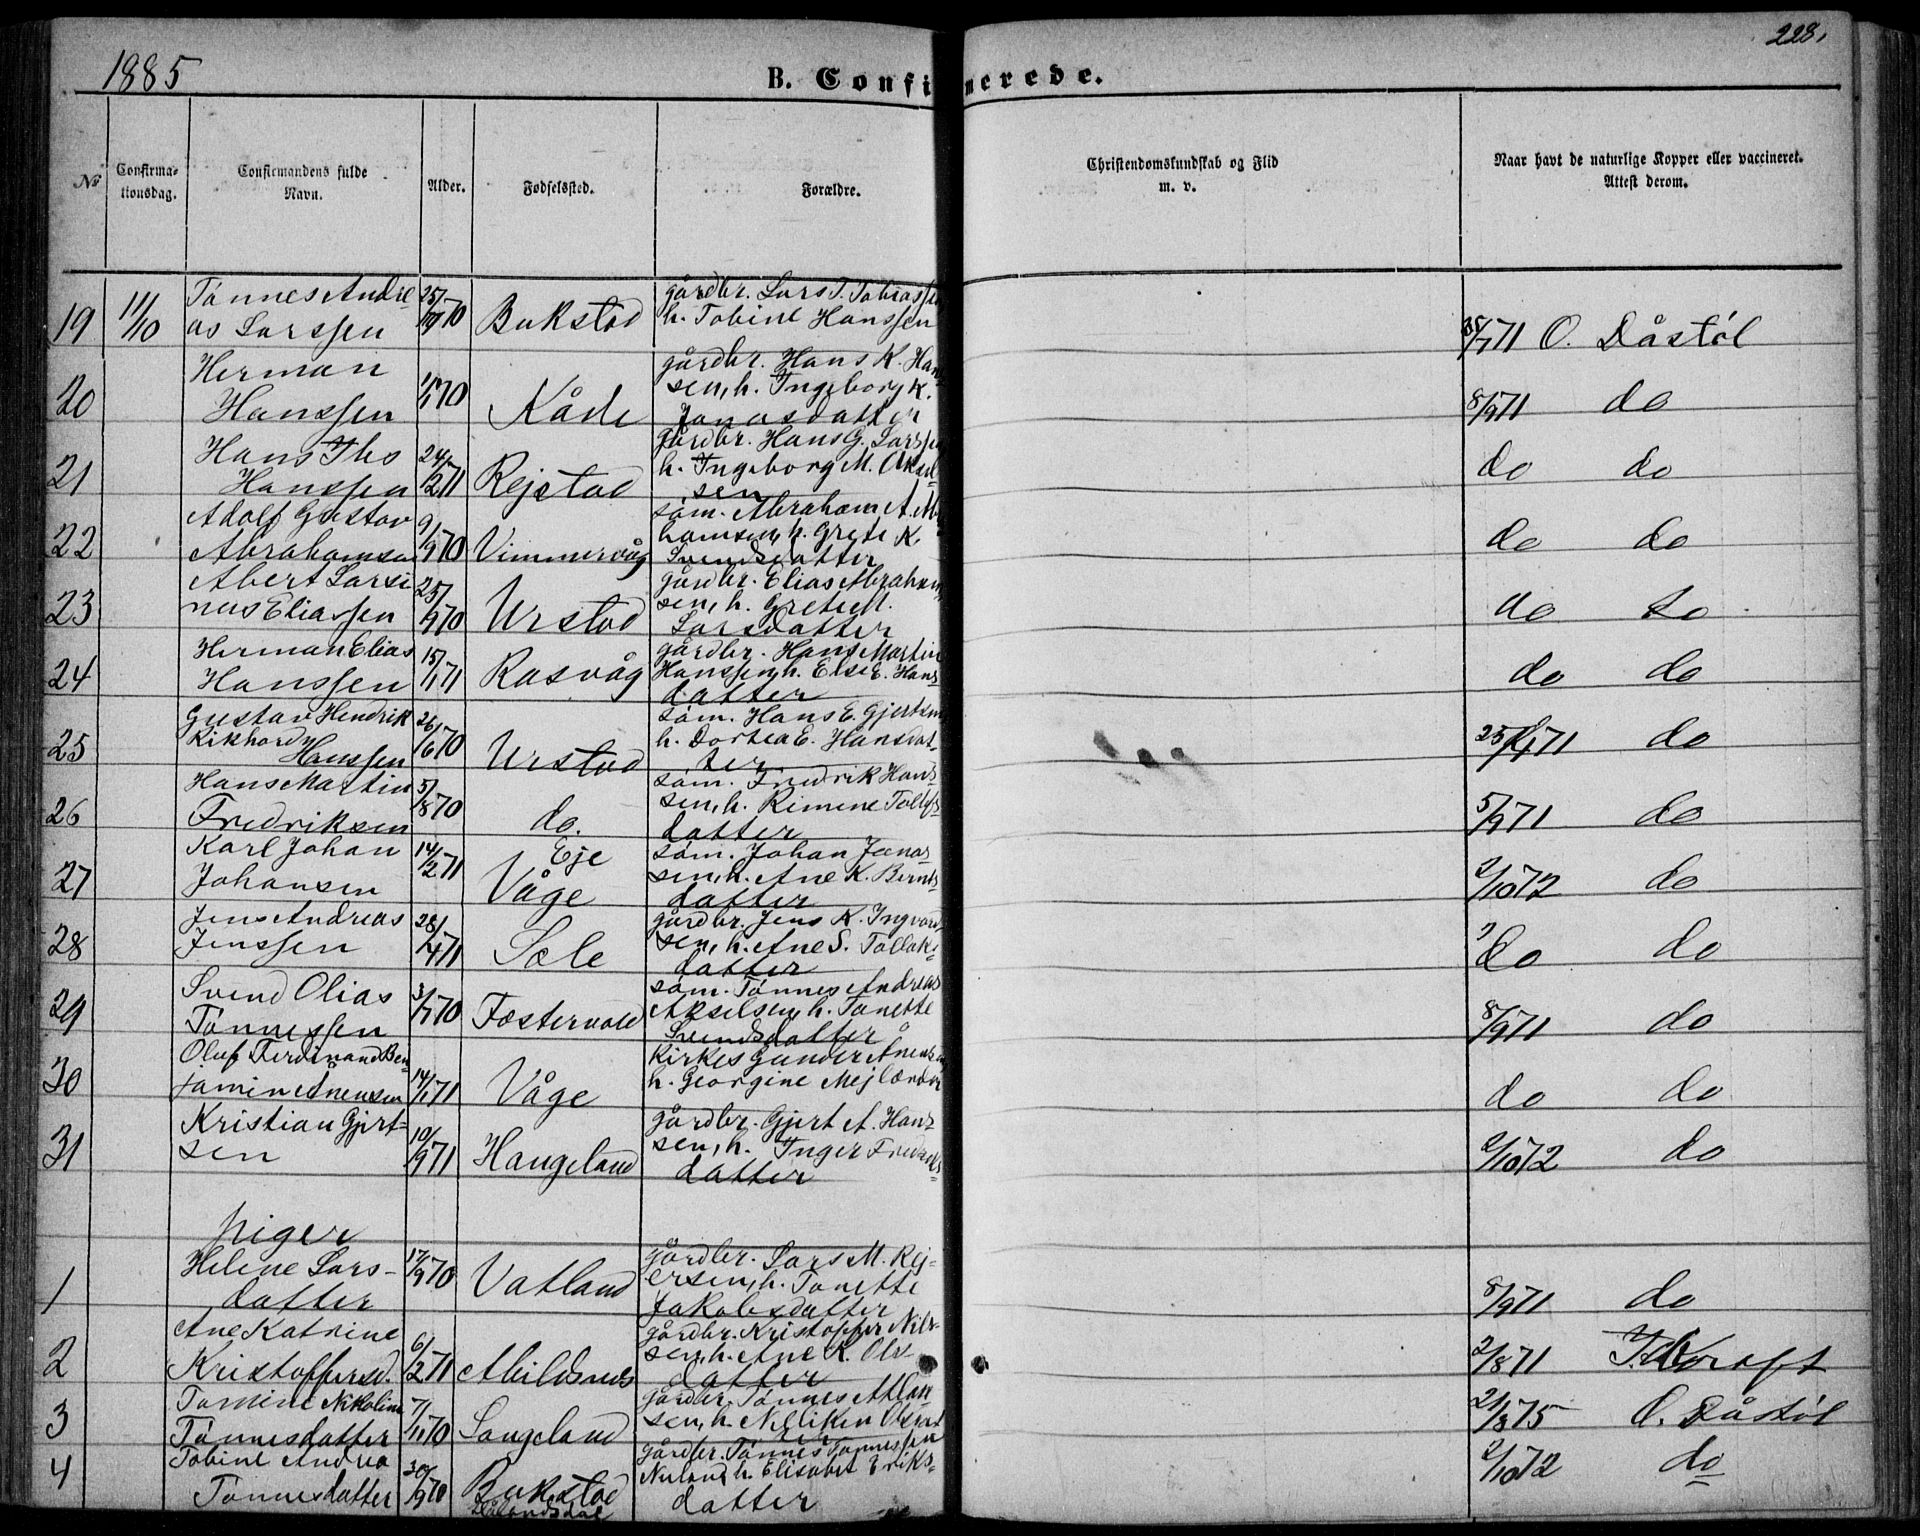 1885
B. Confirmerede.
228.
№
Confirma-
tionsdag.
Confirmandens fulde
Navn.
Alder.
Fødselssted.
Forældre.
Christendomskundskab og Flid
m. v.
Naar havt de naturlige Kopper eller vaccineret.
Attest derom.
19 11/10 Tønnes Andre-
as Larssen
Bukstad
gårdbr. Lars T. Tobiassen
h. Tobine Hanssen
71 O. Dåstøl
20 Herman
Hanssen
Kåde
gårdbr. Hans K. Han-
sen, h. Ingeborg K.
Jonasdatter
8/9 71 do
21 Hans Ths
Hanssen
24/12 71
Rejstad
gårdbr. Hans G. Larssen
h. Ingeborg M. Aksel-
sen
do do
22 Adolf Gustav
Abrahamsen
9/9 70
Vimmervåg
søm. Abraham A. Abra
hamsen, h. Grete K.
Svendsdatter
do do
23 Abert Larsi
nus Eliassen
Urstad
gårdbr. Elias Abraham
sen, h. Grete M.
Larsdatter
do do
24 Herman Elias
Hanssen
15/1 71
Rasvåg
gårdbr. Hans Martin
Hanssen, h. Else E. Hans-
datter
do do
25 Gustav Hendrik
Rikhard
Hanssen
26/6 70
Urstad
søm. Hans E. Gjertsen
h. Dortea E. Hansdat-
ter
71 do
26 Hans Martin
Fredriksen
5/8 70
do.
søm. Fredrik Hans-
sen, h. Rimene Tollefs-
datter
5/9 71 do
27 Karl Johan
Johansen
14/2 71
Eje
Våge
søm. Johan Jonas-
sen, h. Ane K. Bernts-
datter
2/10 72 do
28 Jens Andreas
Jenssen
28/4 71
Sæle
gårdbr. Jens K. Ingvald-
sen, h. Ane S. Tollaks-
datter
do do
29 Svend Olias
Tønnessen
3/7 70
Fostervold
søm. Tønnes Andreas
Akselsen, h. Tonette
Svendsdatter
8/9 71 do
30 Oluf Ferdinand Ben-
jamin Ånensen
14/1 71
Våge
Kirkes. Gunder Ånensen
h. Georgine Mejlænder
do do
31 Kristian Gjert-
sen
19/9 71
Haugeland
gårdbr. Gjert A. Han-
sen, h. Inger Fredriks-
datter
2/10 72 do
piger
1 Helene Lars-
datter
17/9 70
Vatland
gårdbr. Lars M. Rej-
ersen, h. Tonette
Jakobsdatter
8/9 71 do
2 Ane Katrine
Kristoffersd.
6/2 71
Abildsnes
gårdbr. Kristoffer Nils-
sen, h. Ane K. Ols-
datter
2/8 71 Kraft
3 Tomine Nikoline
Tønnesdatter
7/11 70
Langeland
gårdbr. Tønnes Atlak
sen, h. Nilliken Olsdat
ter
21/8 75 O. Dåstøl
4 Tobine Andrea
Tønnesdatter
30/9 70
Bukstad
gårdbr. Tønnes Tønnessen
h. Elisabet Eriks-
datter
2/10 72 do